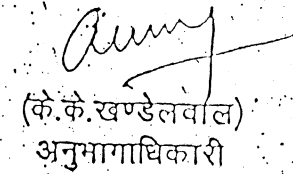 (के.के.खण्डेलवाल)
अनुभागाधिकारी